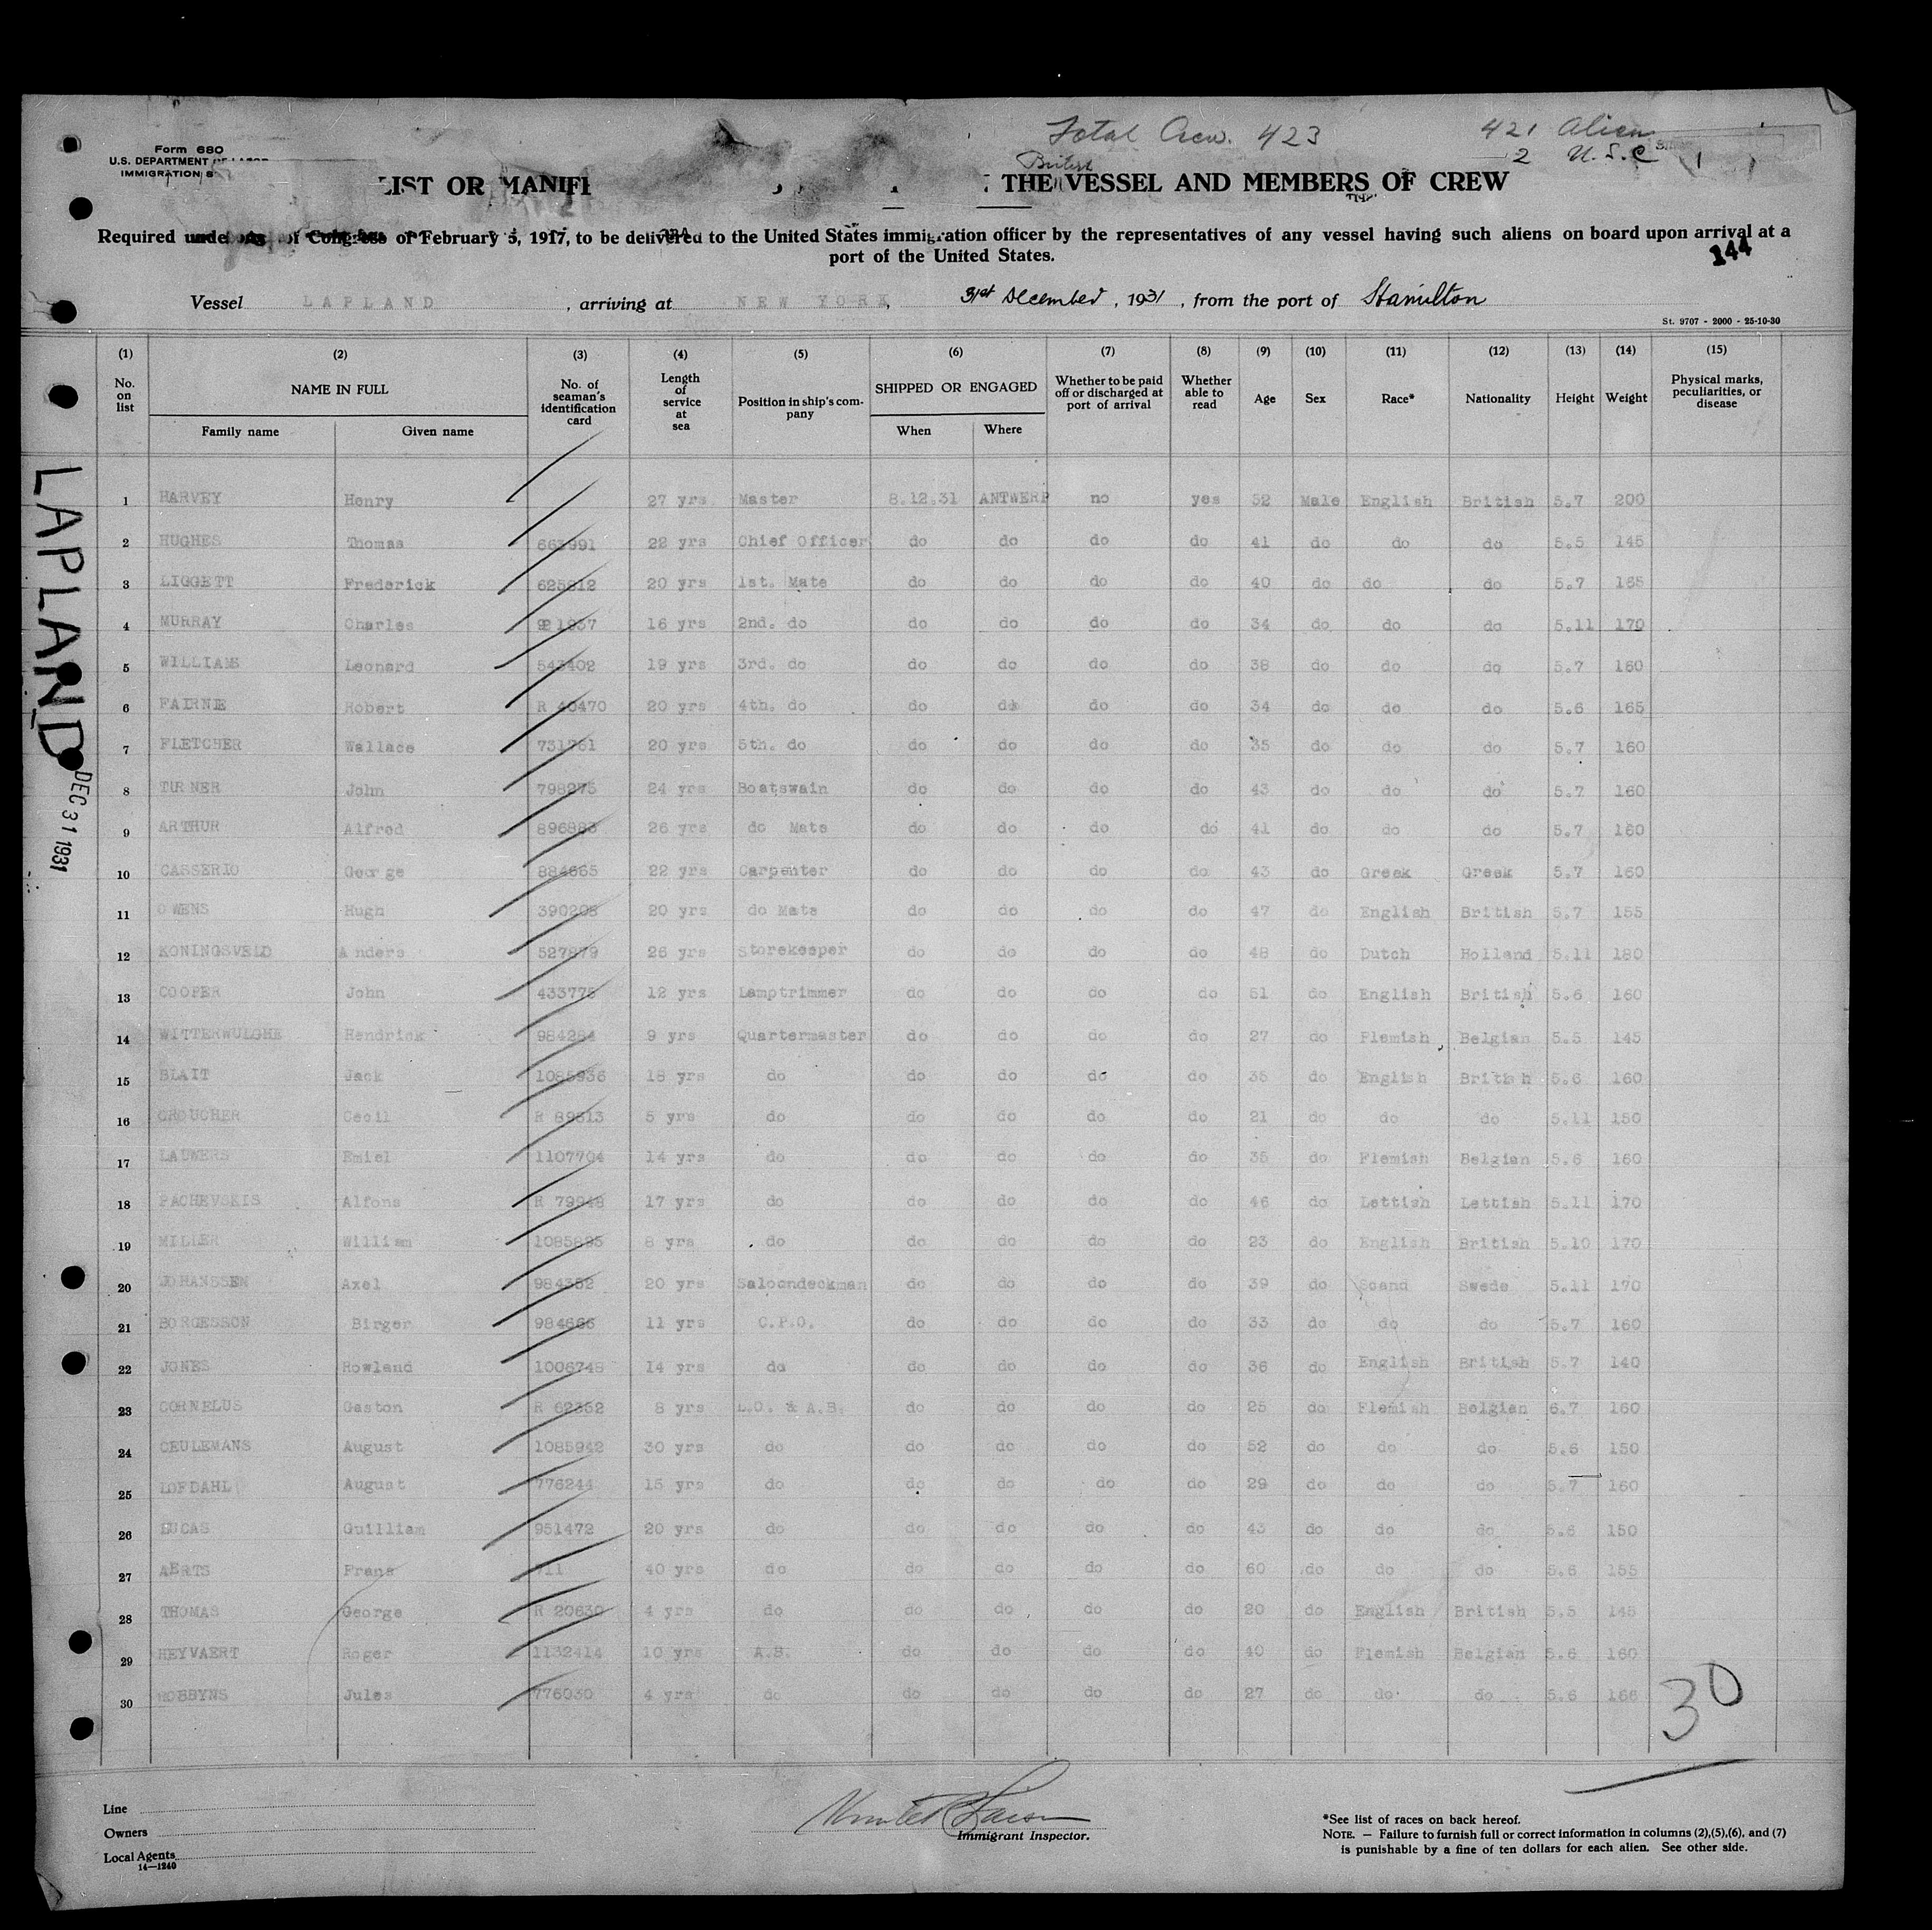 Total Crew. 423
421 Alien
2 U.S.C
Form 680
U.S. DEPARTMENT OF LABOR
IMMIGRATION S
British
LIST OR MANIFE THE VESSEL AND MEMBERS OF CREW
Required under of Congress of February 5, 1917, to be delivered to the United States immigration officer by the representatives of any vessel having such aliens on board upon arrival at a
port of the United States.
144
Vessel LAPLAND, arriving at NEW YORK, 31st December, 1931, from the port of Hamilton
St. 9707 - 2000 - 25-10-30
(1) (2) (3) (4) (5) (6) (7) (8) (9) (10) (11) (12) (13) (14) (15)
No. on list NAME IN FULL No. of seaman's identification card Length of service at sea Position in ship's company SHIPPED OR ENGAGED Whether to be paid off or discharged at port of arrival Whether able to read Age Sex Race* Nationality Height Weight Physical marks, peculiarities, or disease
Family name Given name When Where
1 HARVEY Henry 27 yrs Master 8.12.31 ANTWERP no yes 52 Male English British 5.7 200
2 HUGHES Thomas 663991 22 yrs Chief Officer do do do do 41 do do do 5.5 145
3 LIGGETT Frederick 625812 20 yrs 1st. Mate do do do do 40 do do do 5.7 165
4 MURRAY Charles 1937 16 yrs 2nd. do do do do do 34 do do do 5.11 170
5 WILLIAMS Leonard 543402 19 yrs 3rd. do do do do do 38 do do do 5.7 160
6 FAIRNIE Robert R 40470 20 yrs 4th. do do do do do 34 do do do 5.6 165
7 FLETCHER Wallace 731761 20 yrs 5th. do do do do do 35 do do do 5.7 160
8 TURNER John 798275 24 yrs Boatswain do do do do 43 do do do 5.7 160
9 ARTHUR Alfred 896883 26 yrs do Mate do do do do 41 do do do 5.7 160
10 CASSERIO George 884665 22 yrs Carpenter do do do do 43 do Greek Greek 5.7 160
11 OWENS Hugh 390208 20 yrs do Mate do do do do 47 do English British 5.7 155
12 KONINGSVELD Anders 527879 26 yrs Storekeeper do do do do 48 do Dutch Holland 5.11 180
13 COOPER John 433775 12 yrs Lamptrimmer do do do do 51 do English British 5.6 160
14 WITTERWULGHE Hendrick 984284 9 yrs Quartermaster do do do do 27 do Flemish Belgian 5.5 145
15 BLAIT Jack 1085936 18 yrs do do do do do 35 do English British 5.6 160
16 CROUCHER Cecil R 89513 5 yrs do do do do do 21 do do do 5.11 150
17 LAUWERS Emiel 1107704 14 yrs do do do do do 35 do Flemish Belgian 5.6 160
18 PACHEVSKIS Alfons R 79948 17 yrs do do do do do 46 do Lettish Lettish 5.11 170
19 MILLER William 1085895 8 yrs do do do do do 23 do English British 5.10 170
20 JOHANSSEN Axel 984352 20 yrs Saloondeckman do do do do 39 do Scand Swede 5.11 170
21 BORGESSON Birger 984666 11 yrs C.P.O. do do do do 33 do do do 5.7 160
22 JONES Rowland 1006748 14 yrs do do do do do 36 do English British 5.7 140
23 CORNELUS Gaston R 62352 8 yrs L.O. & A.B. do do do do 25 do Flemish Belgian 6.7 160
24 CEULEMANS August 1085942 30 yrs do do do do do 52 do do do 5.6 150
25 LOFDAHL August 776244 15 yrs do do do do do 29 do do do 5.7 160
26 LUCAS Guilliam 951472 20 yrs do do do do do 43 do do do 5.6 150
27 AERTS Frans 711 40 yrs do do do do do 60 do do do 5.6 155
28 THOMAS George R 20630 4 yrs do do do do do 20 do English British 5.5 145
29 HEYVAERT Roger 1132414 10 yrs A.B. do do do do 40 do Flemish Belgian 5.6 160
30 ROBBYNS Jules 776030 4 yrs do do do do do 27 do do do 5.6 166
30
LAPLAND
DEC 31 1931
Line
Owners
Local Agents
14—1240
Immigrant Inspector.
*See list of races on back hereof.
NOTE. — Failure to furnish full or correct information in columns (2),(5),(6), and (7)
is punishable by a fine of ten dollars for each alien. See other side.